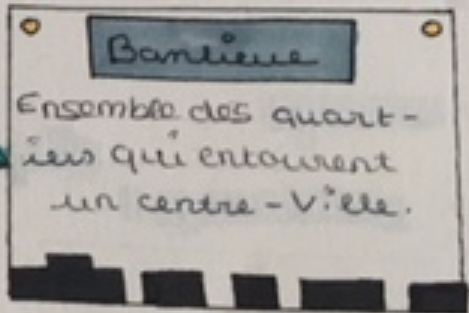 Banlieue
Ensemble des quart-
iers qui entourent
un centre-ville.